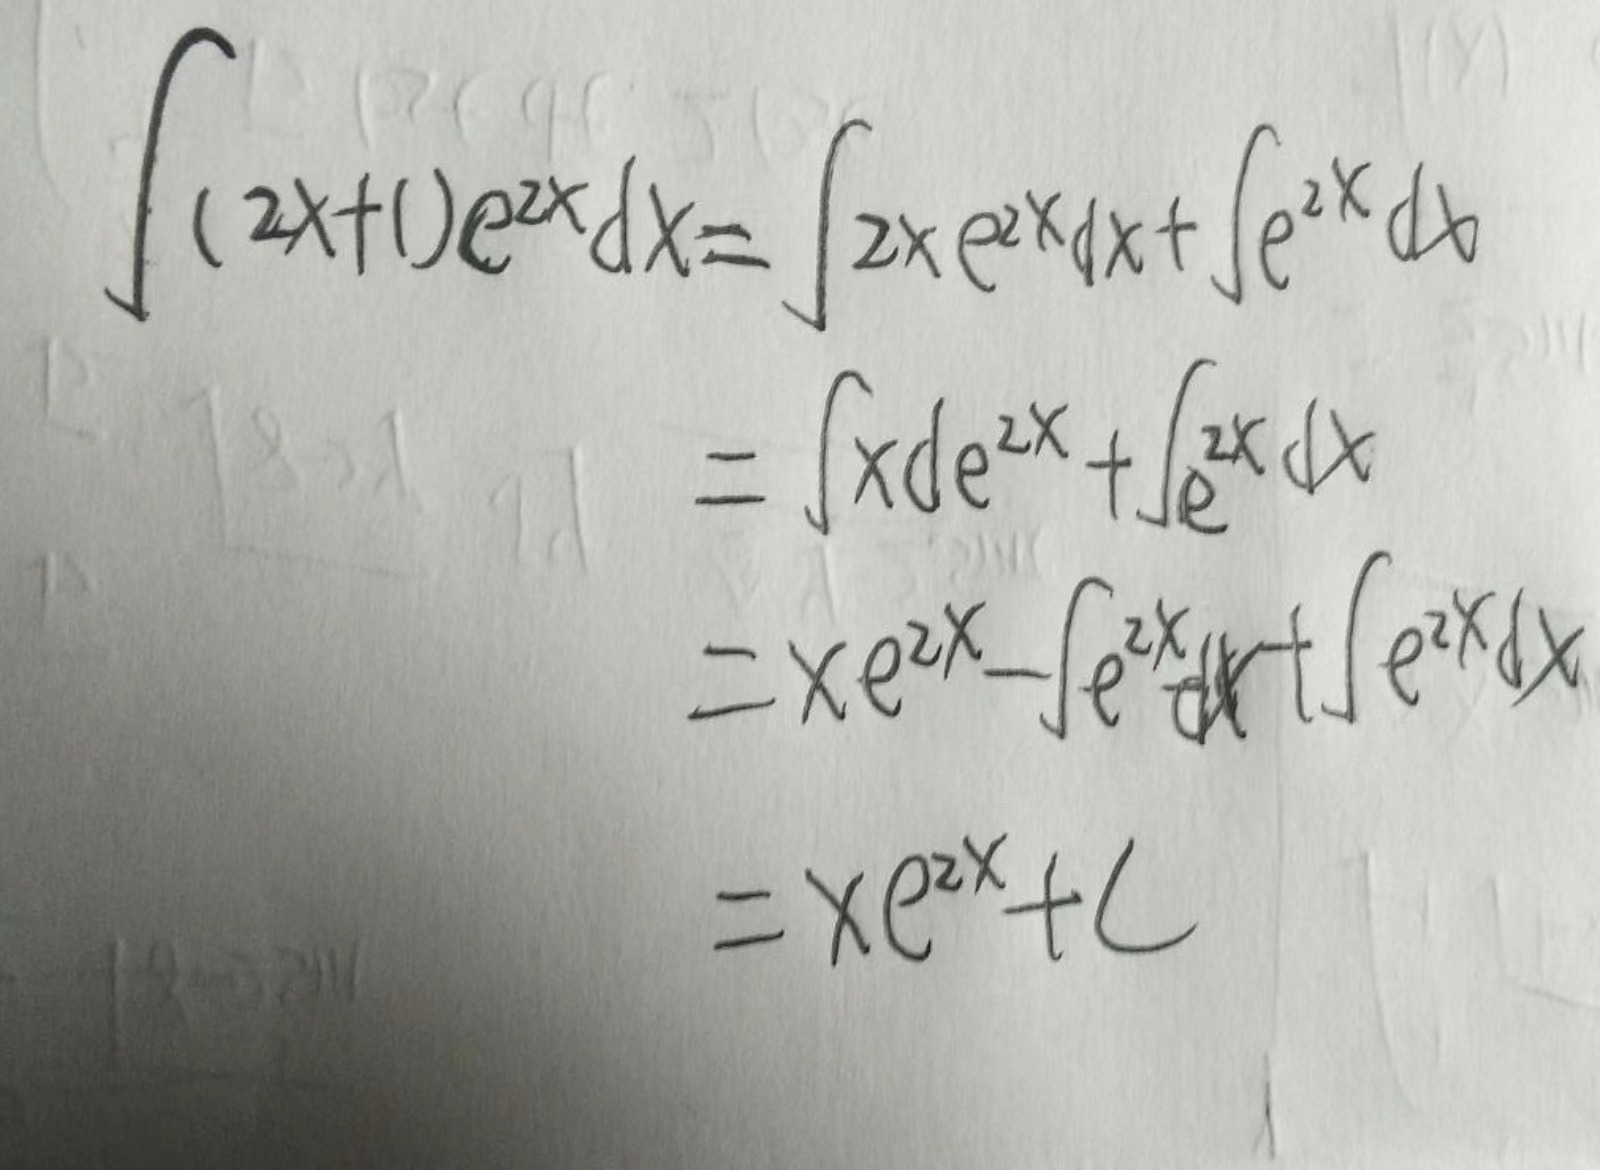 ∫(2x+1)e^{2x}dx=∫2xe^{2x}dx+∫e^{2x}dx
=∫xde^{2x}+∫e^{2x}dx
=xe^{2x}-∫e^{2x}dx+∫e^{2x}dx
=xe^{2x}+C